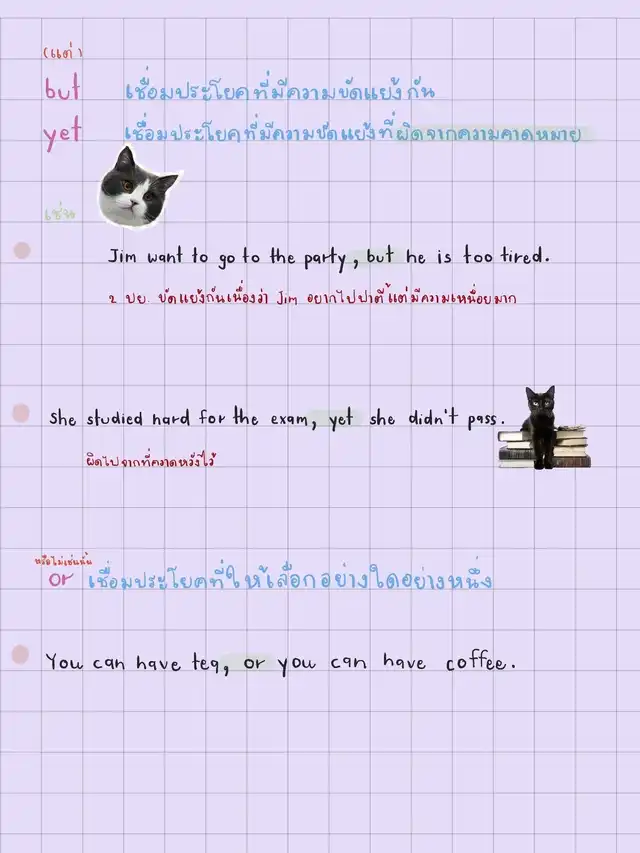 (แต่)
but เชื่อมประโยคที่มีความขัดแย้งกัน
yet เชื่อมประโยคที่มีความขัดแย้งที่ผิดจากความคาดหมาย
เช่น
Jim want to go to the party, but he is too tired.
2 ปย. ขัดแย้งกันเนื่องว่า Jim อยากไปปาตี้แต่มีความเหนื่อยมาก
She studied hard for the exam, yet she didn't pass.
ผิดไปจากที่คาดหวังไว้
หรือไม่เช่นนั้น
or เชื่อมประโยคที่ให้เลือกอย่างใดอย่างหนึ่ง
You can have tea, or you can have coffee.